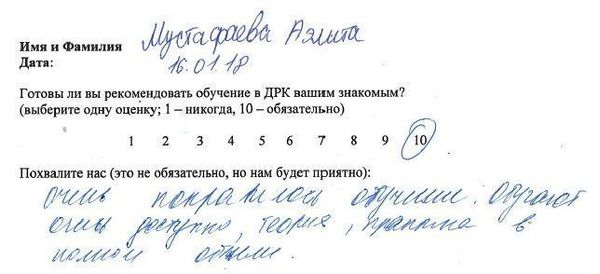 Имя и Фамилия Мустафаева Аэлита
Дата: 16.01.18
Готовы ли вы рекомендовать обучение в ДРК вашим знакомым?
(выберите одну оценку; 1 – никогда, 10 – обязательно)
1 2 3 4 5 6 7 8 9 10
Похвалите нас (это не обязательно, но нам будет приятно):
очень понравилось обучение. Обучают
очень доступно, теория, практика в
полном объеме.